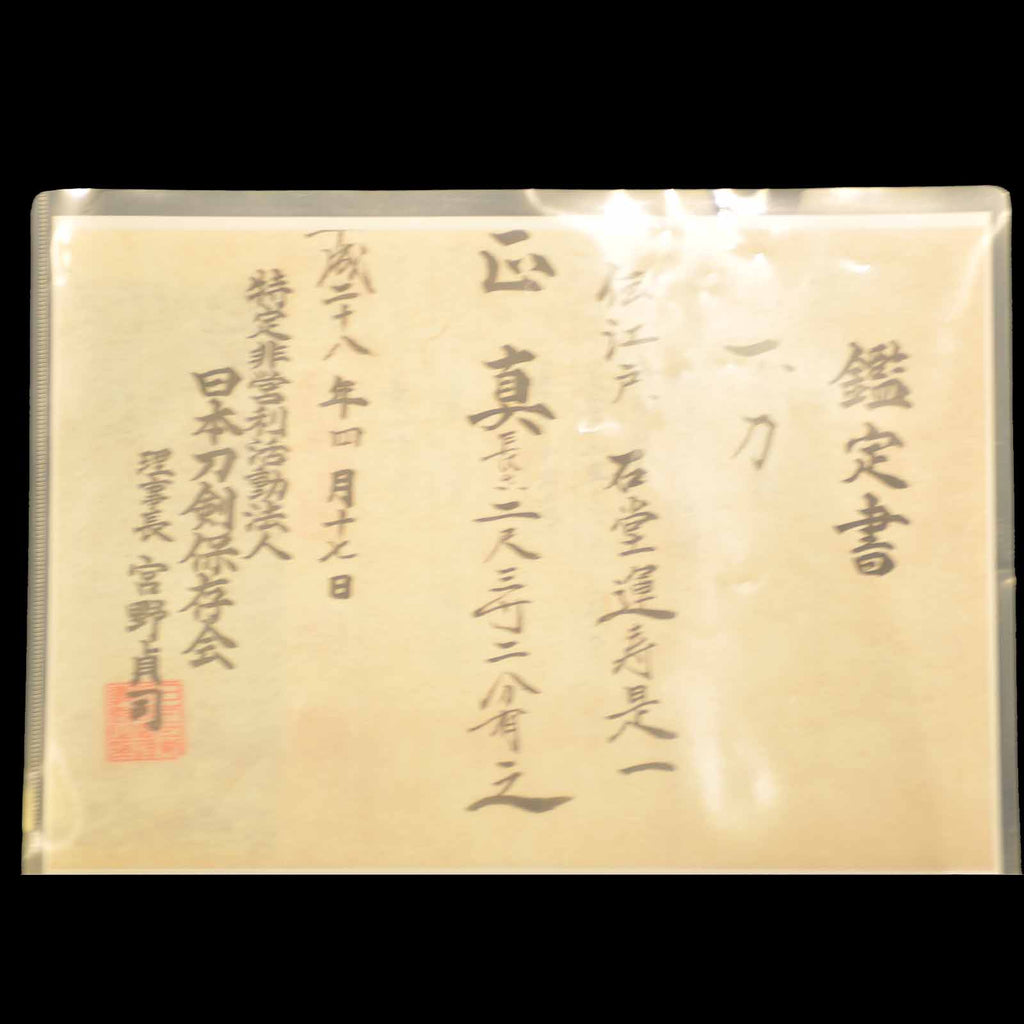 鑑定書
一、刀
伝江戸 石堂運寿是一
正真 長サ二尺三寸二分有之
平成二十八年四月十七日
特定非営利活動法人
日本刀剣保存会
理事長 宮野貞司